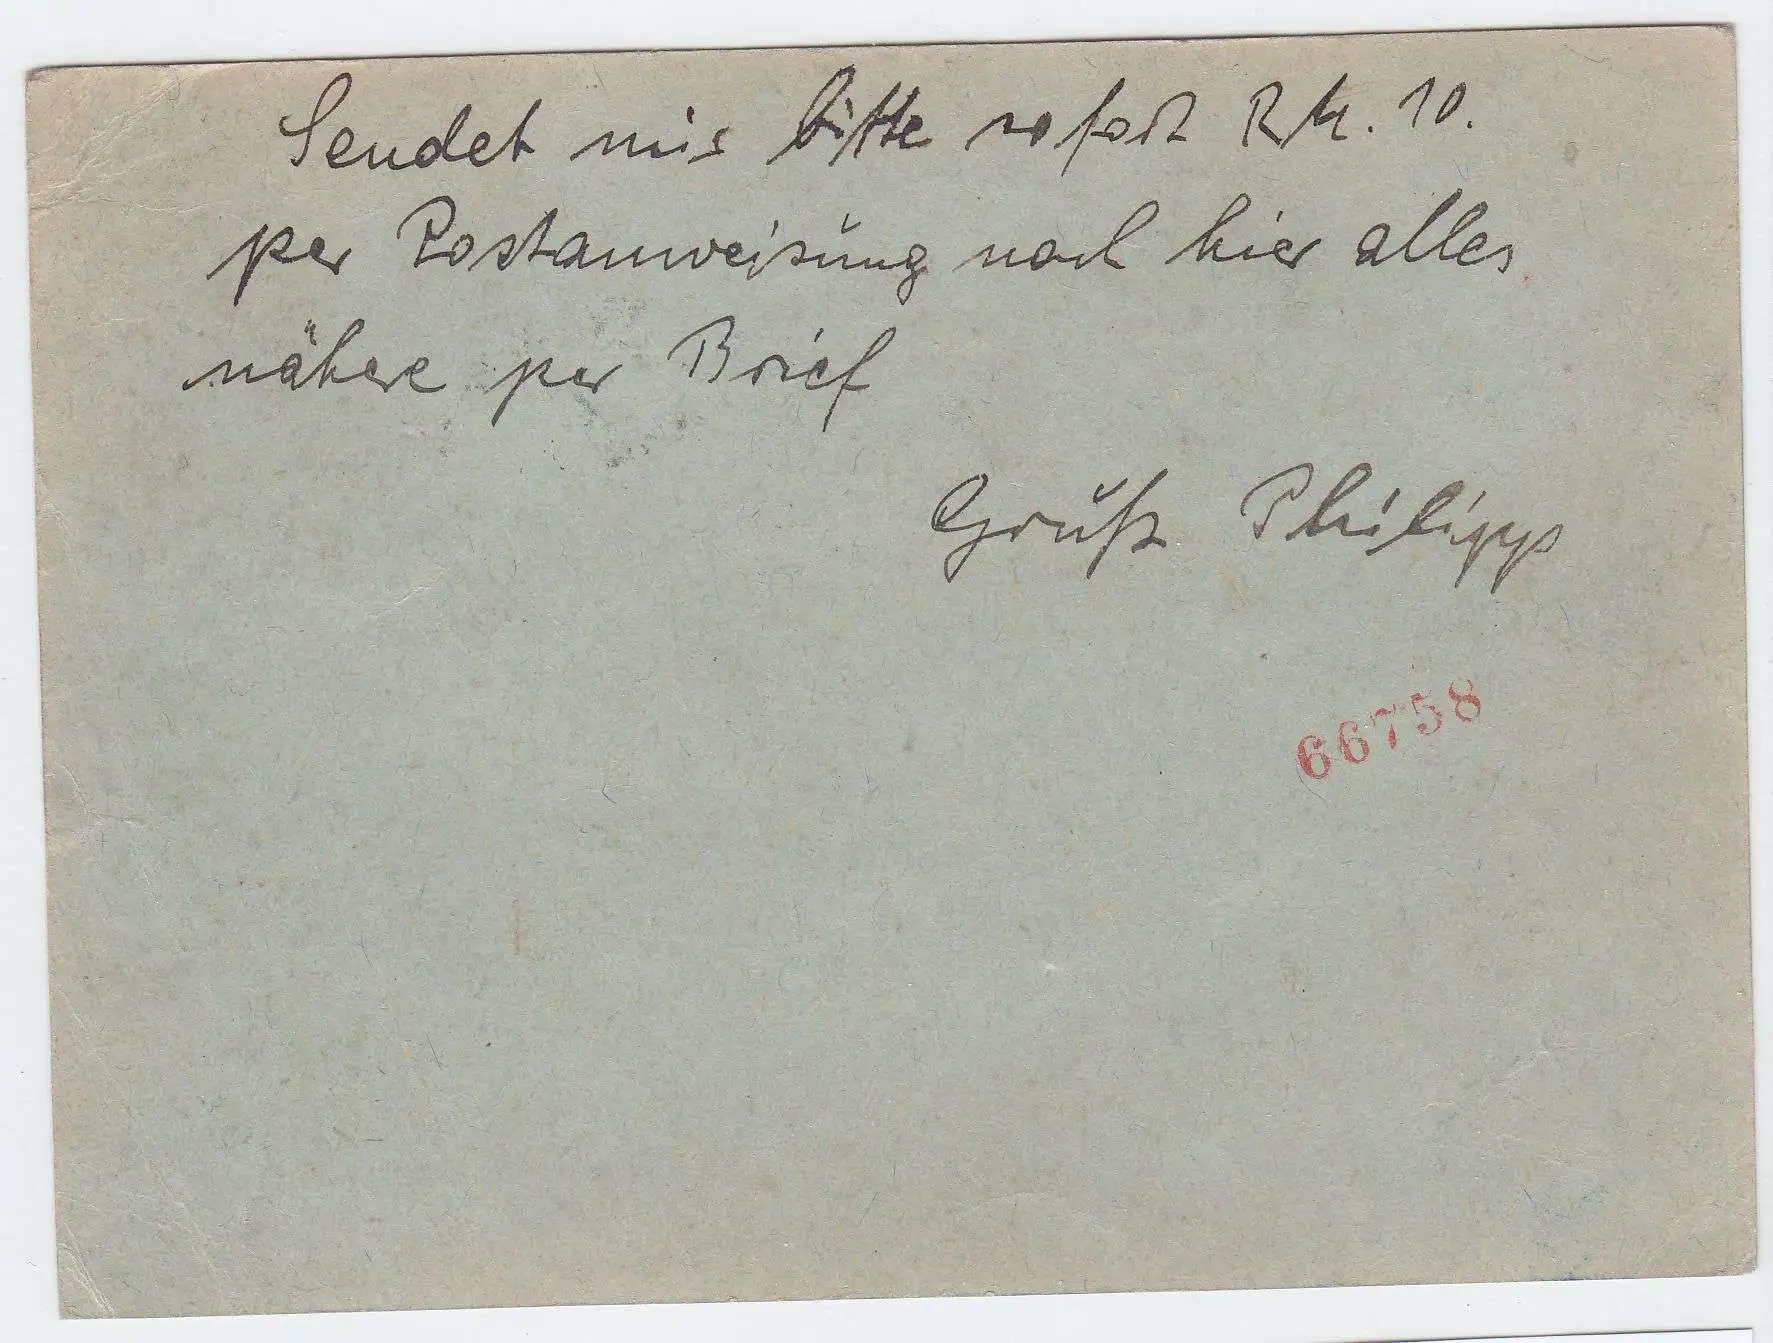 Sendet mir bitte sofort RM. 10.
per Postanweisung nach hier alles
nähere per Brief
Gruß Philipp
66758